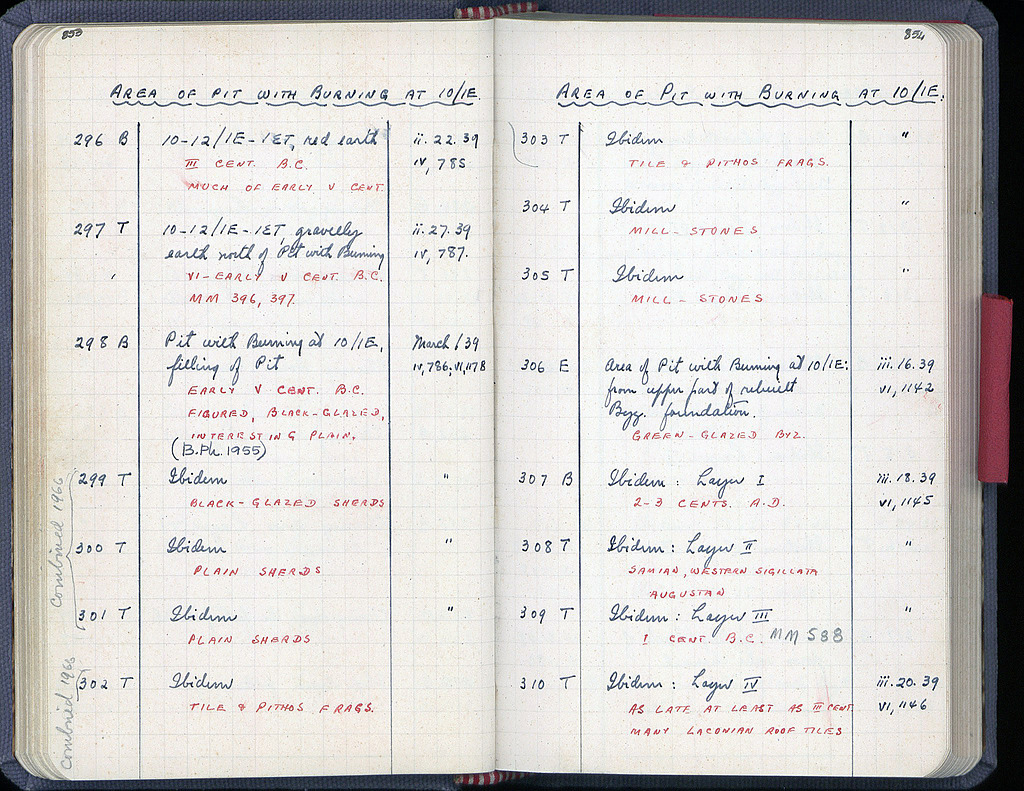 853
AREA OF PIT WITH BURNING AT 10/1E.
296 B 10-12/1E-1ET, red earth ii.22.39
III CENT. B.C. IV, 785
MUCH OF EARLY V CENT.
297 T 10-12/1E-1ET, gravelly ii.27.39
earth north of Pit with Burning IV, 787.
VI-EARLY V CENT. B.C.
MM 396, 397.
298 B Pit with Burning at 10/1E, March/39
filling of Pit IV, 786; VI, 1178
EARLY V CENT. B.C.
FIGURED, BLACK-GLAZED,
INTERESTING PLAIN.
(B.Ph. 1955)
299 T Ibidem "
BLACK-GLAZED SHERDS
300 T Ibidem "
PLAIN SHERDS
301 T Ibidem "
PLAIN SHERDS
302 T Ibidem
TILE & PITHOS FRAGS.
Combined 1966
Combined 1966
854
AREA OF PIT WITH BURNING AT 10/1E.
303 T Ibidem "
TILE & PITHOS FRAGS.
304 T Ibidem "
MILL-STONES
305 T Ibidem "
MILL-STONES
306 E Area of Pit with Burning at 10/1E: iii.16.39
from upper part of rebuilt VI, 1142
Byz. foundation.
GREEN-GLAZED BYZ.
307 B Ibidem: Layer I iii.18.39
2-3 CENTS. A.D. VI, 1145
308 T Ibidem: Layer II "
SAMIAN, WESTERN SIGILLATA
AUGUSTAN
309 T Ibidem: Layer III "
I CENT. B.C. MM 588
310 T Ibidem: Layer IV iii.20.39
AS LATE AT LEAST AS III CENT. VI, 1146
MANY LACONIAN ROOF TILES